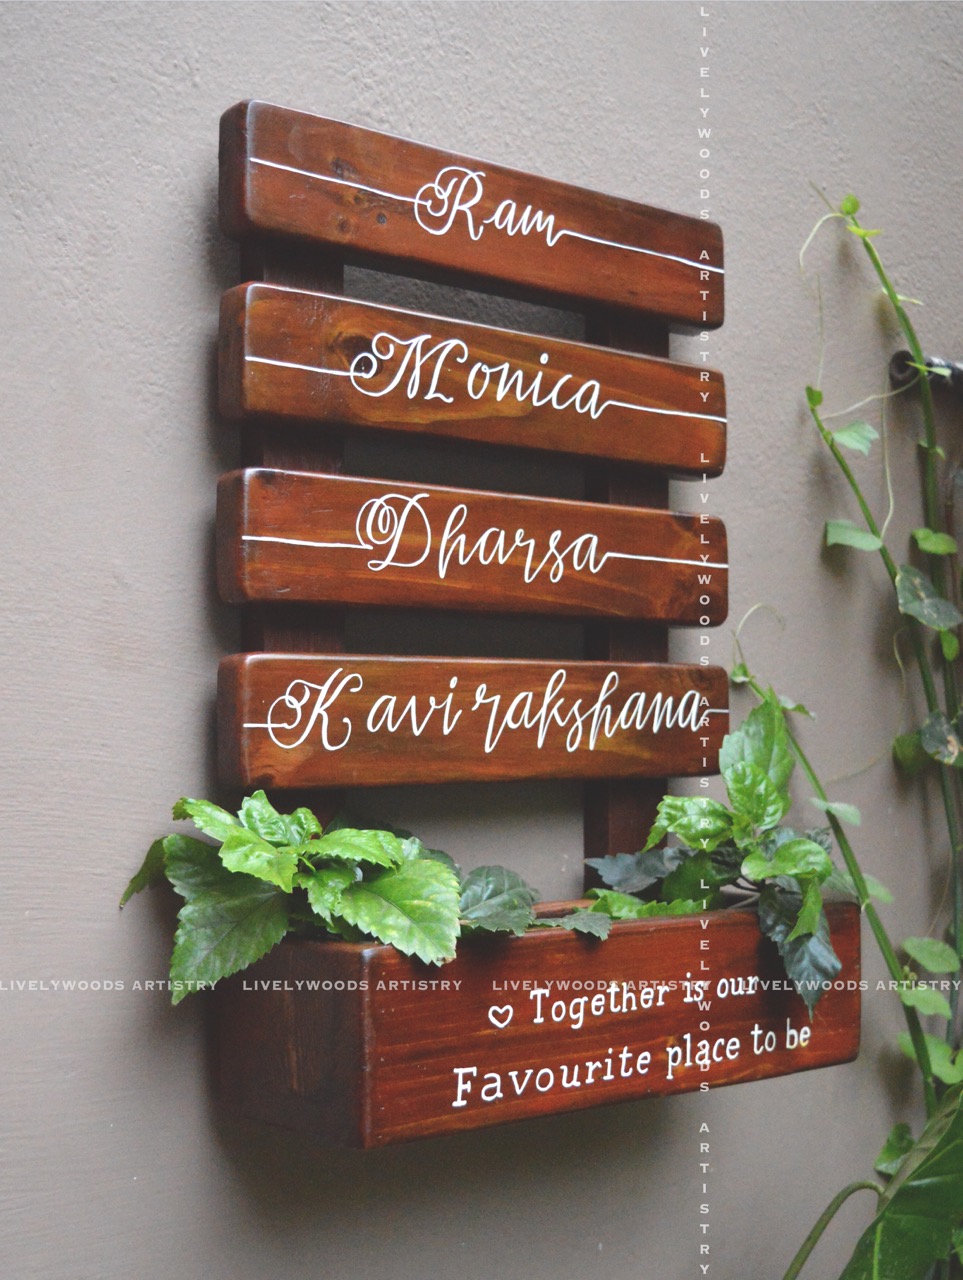 Ram
Monica
Dharsa
Kavirakshana
♡ Together is our
Favourite place to be
LIVELYWOODS ARTISTRY LIVELYWOODS ARTISTRY LIVELYWOODS ARTISTRY LIVELYWOODS ARTISTRY
LIVELYWOODS ARTISTRY LIVELYWOODS ARTISTRY LIVELYWOODS ARTISTRY